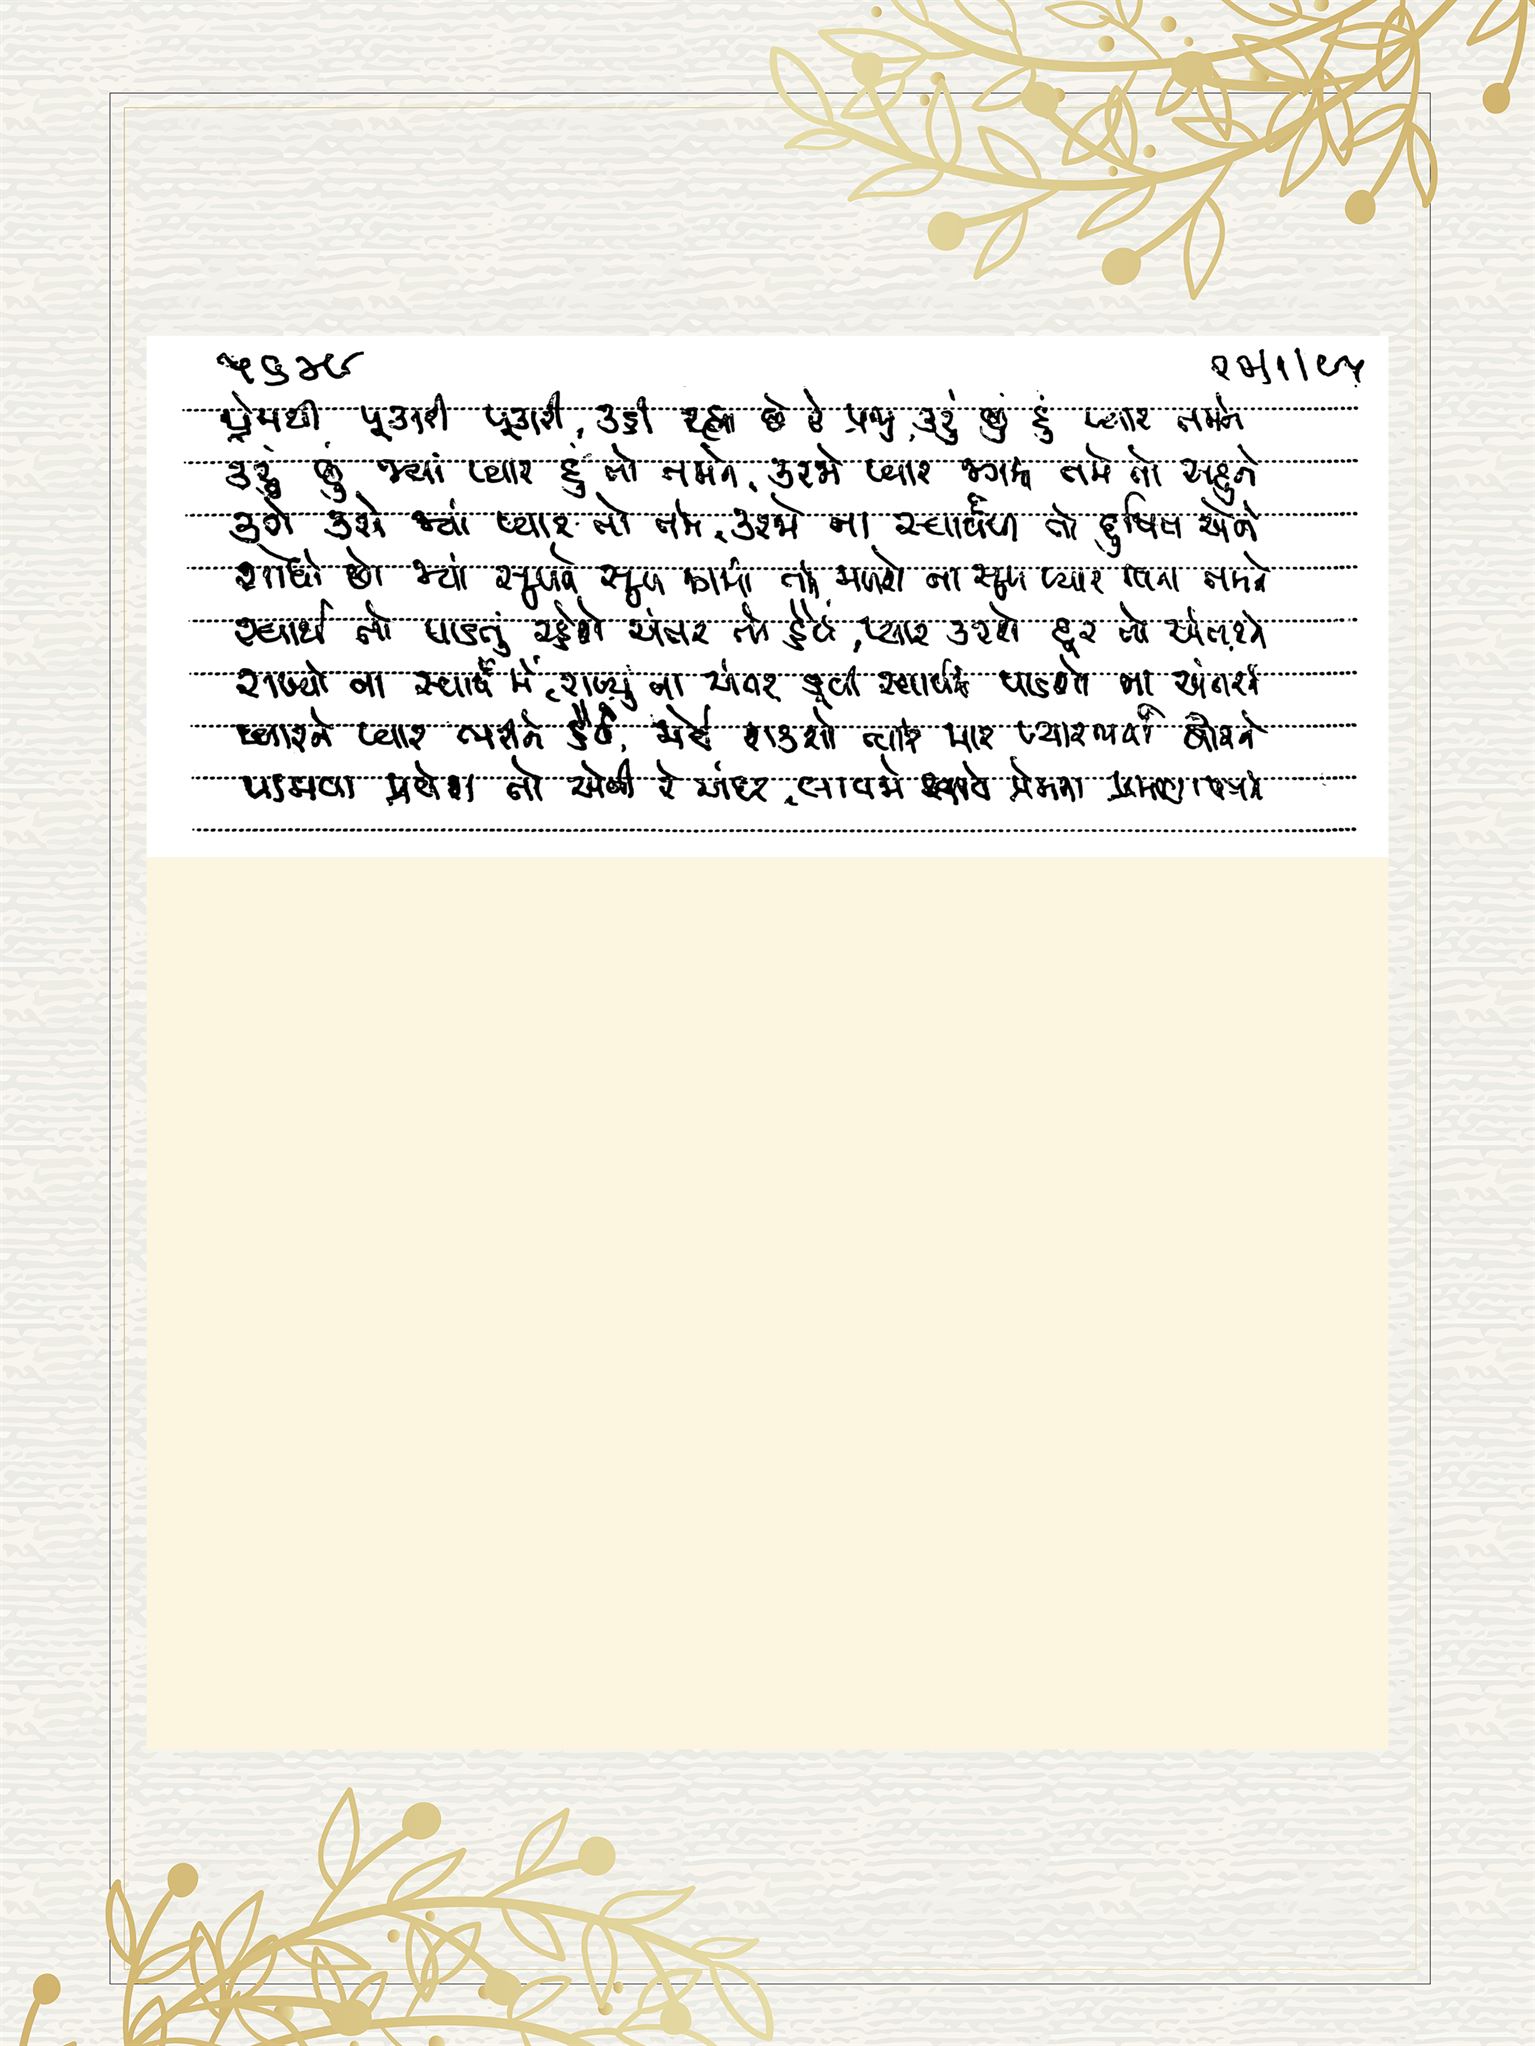 ૫૬૪૯ ૨૪/૧/૯૫
પ્રેમથી પૂકારી પૂકારી, કહી રહ્યા છે રે પ્રભુ, કરું છું હું પ્યાર તમને
કરું છું જ્યાં પ્યાર હું તો તમને, કરજો પ્યાર જગમાં તમે તો સહુને
કરો કરશો જ્યાં પ્યાર તો તમે, કરજો ના સ્વાર્થથી તો દુષિત એને
શોધો છો જ્યાં સુખને સુખ કાજે તો, મળશે ના સુખ પ્યાર વિના તમને
સ્વાર્થ તો પાડતું રહેશે અંતર તો હૈયે, પ્યાર કરશે દૂર તો અંતરને
રાખ્યો ના સ્વાર્થ મેં, રાખ્યું ના અંતર સ્વાર્થ પાડશે ના અંતરને
પ્યારને પ્યાર ભરીને હૈયે, શકશો પ્યારભર્યા જીવને
પામવા પ્રવેશ તો એની રે અંદર, લાવજો પ્રેમના પ્રમાણપત્રને